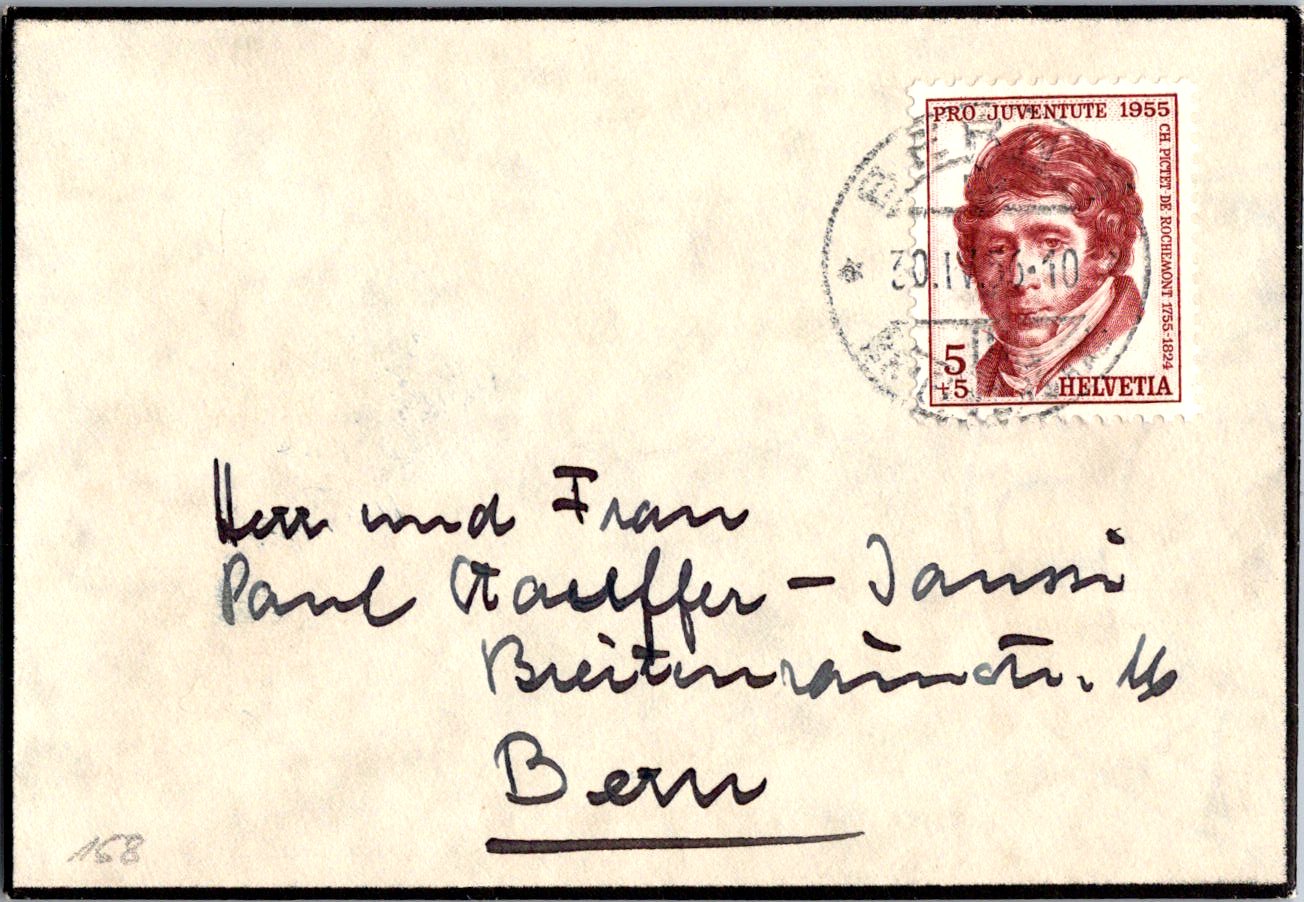 PRO JUVENTUTE 1955
CH. PICTET-DE ROCHEMONT 1755-1824
BERN
30.IV.56-10
5
+5
HELVETIA
Herr und Frau
Paul Staelffer - Jaussi
Breitenrainstr. 16
Bern
158